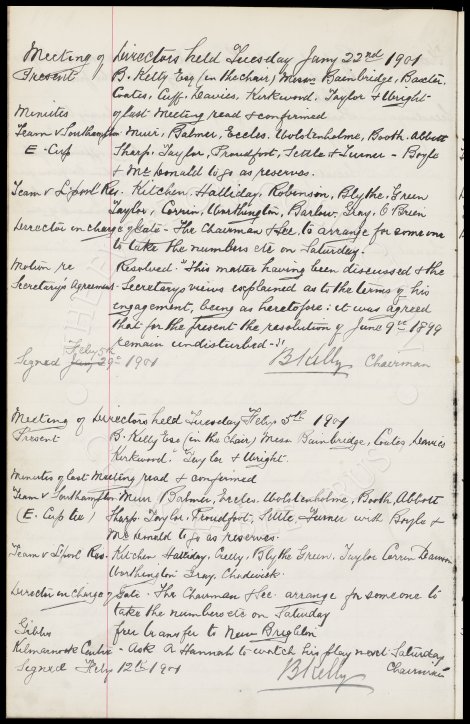 Meeting of Directors held Tuesday Jany 22nd 1901
Present B. Kelly Esq (in the chair) Messrs Bainbridge, Baxter
Coates, Cuff, Davies, Kirkwood, Taylor & Wright
Minutes of last Meeting read & confirmed
Team v Southampton Muir, Balmer, Eccles, Wolstenholme, Booth, Abbott
E - Cup Sharp, Taylor, Proudfoot, Settle & Turner - Boyle
& McDonald to go as reserves.
Team v L'pool Res. Kitchen, Halliday, Robinson, Blythe, Green
Taylor, Corrin, Worthington, Barlow, Gray, O'Brien
Director in charge of Gate - The Chairman & Sec, to arrange for someone
to take the numbers etc on Saturday.
Motion re Resolved: "This matter having been discussed & the
Secretary's Agreement Secretarys views explained as to the terms of his
engagement, being as heretofore: it was agreed
that for the present the resolution of June 9th 1899
remain undisturbed -"
Feby 5th
Signed Jany 29th 1901 B Kelly Chairman
Meeting of Directors held Tuesday Feby 5th 1901
Present B. Kelly Esq (in the chair) Messrs Bainbridge, Coates, Davies
Kirkwood, Taylor & Wright.
Minutes of last Meeting read & confirmed
Team v Southampton Muir, Balmer, Eccles, Wolstenholme, Booth, Abbott
(E. Cup tie) Sharp, Taylor, Proudfoot, Settle, Turner with Boyle &
McDonald to go as reserves.
Team v L'pool Res. Kitchen, Halliday, Crelly, Blythe, Green, Taylor, Corrin, Dawson
Worthington, Gray, Chadwick.
Director in charge of Gate - The Chairman & Sec arrange for someone to
take the numbers etc on Saturday
Gibbs free transfer to New Brighton
Kilmarnock Centre - Ask A Hannah to watch his play next Saturday
Signed Feby 12th 1901 B Kelly Chairman